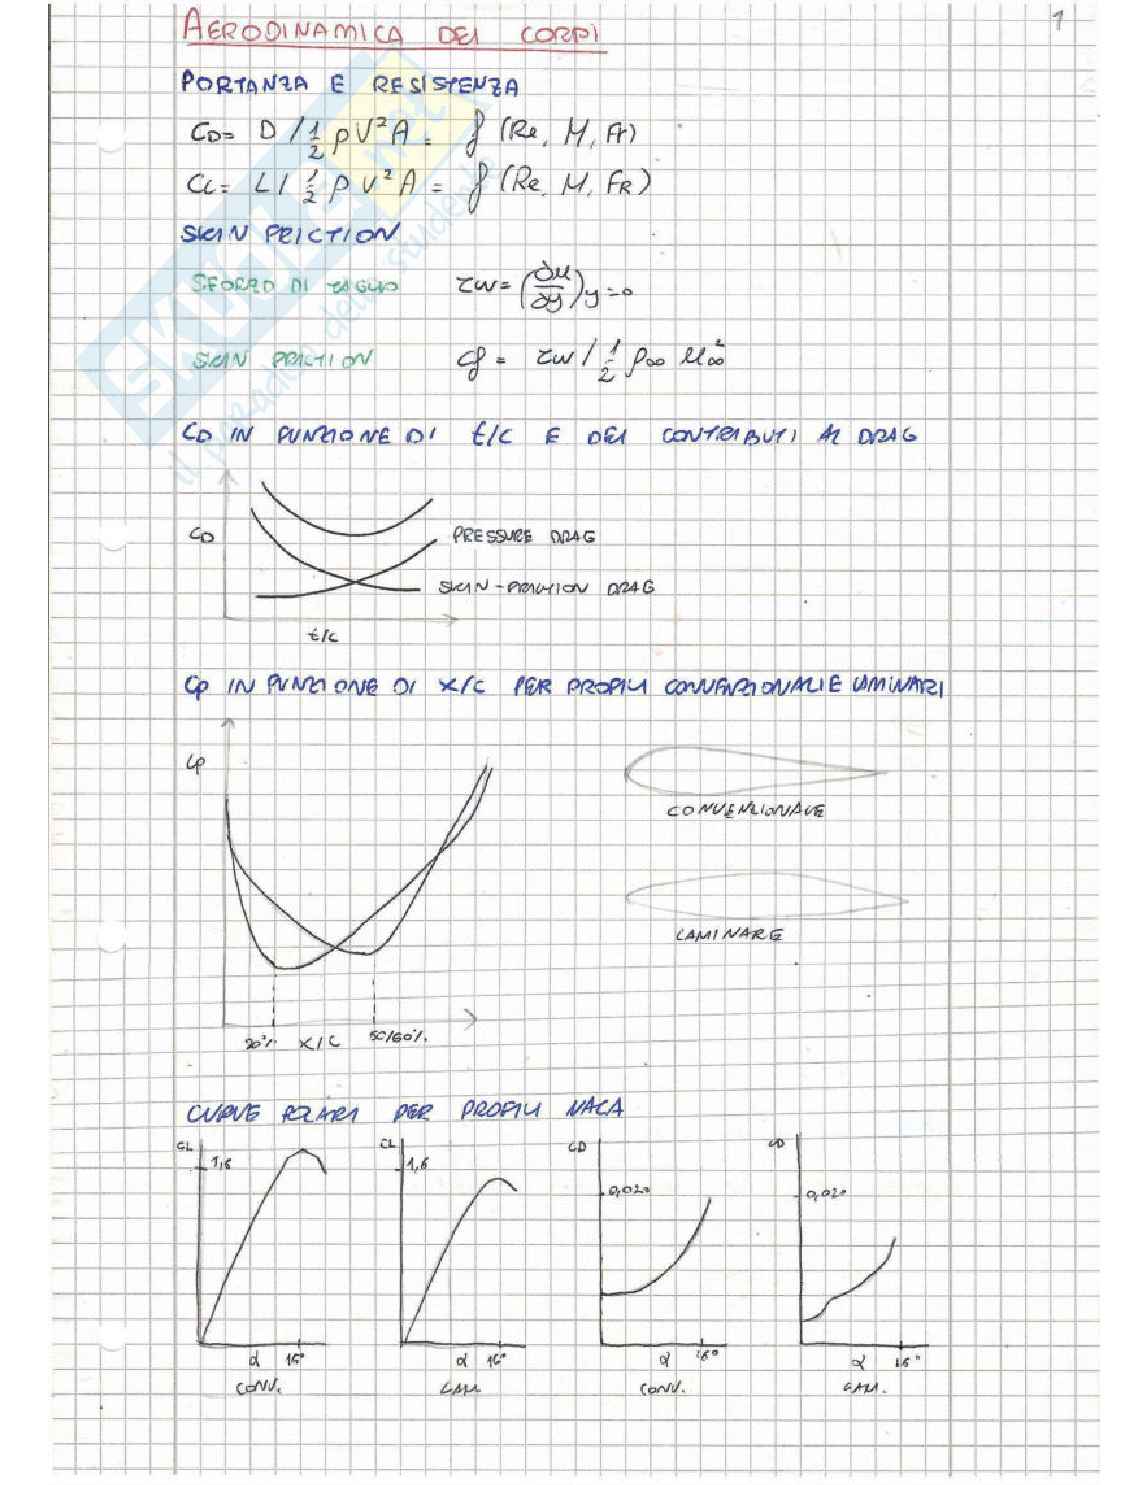 1
AERODINAMICA DEI CORPI
PORTANZA E RESISTENZA
CD = D / 1/2 ρ V² A = f (Re, M, Fr)
CL = L / 1/2 ρ V² A = f (Re, M, FR)
SKIN FRICTION
SFORZO DI TAGLIO τw = (∂u/∂y) y=0
SKIN FRICTION cf = τw / 1/2 ρ∞ u∞²
CD IN FUNZIONE DI t/c E DEI CONTRIBUTI AL DRAG
CD
PRESSURE DRAG
SKIN-FRICTION DRAG
t/c
Cp IN FUNZIONE DI x/c PER PROFILI CONVENZIONALI E LAMINARI
Cp
CONVENZIONALE
LAMINARE
20% x/c 50/60%
CURVE POLARI PER PROFILI NACA
CL CL CD CD
1,6 1,6 0,020 0,020
α 16° α 16° α 16° α 16°
CONV. LAM. CONV. LAM.
SKUOLA.net
il paradiso dello studente